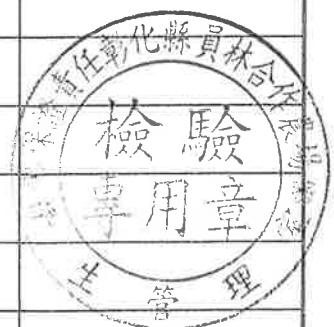 保證責任彰化縣員林合作農場
檢驗
專用章
生管理